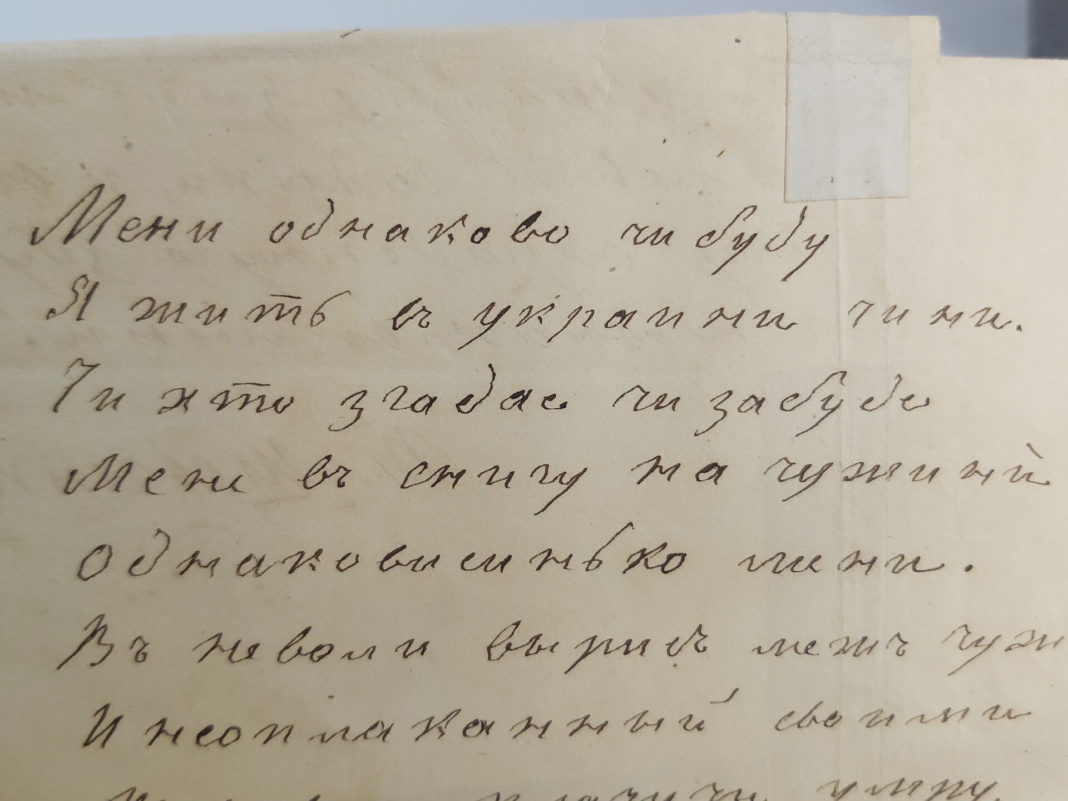 Мени однаково чи буду
Я жить въ украини чи ни.
Чи хто згадае чи забуде
Мене въ снигу на чужинй
Однаковисинько мени.
Въ неволи вырисъ межъ чуж
И неоплаканный своими
плачучи умру